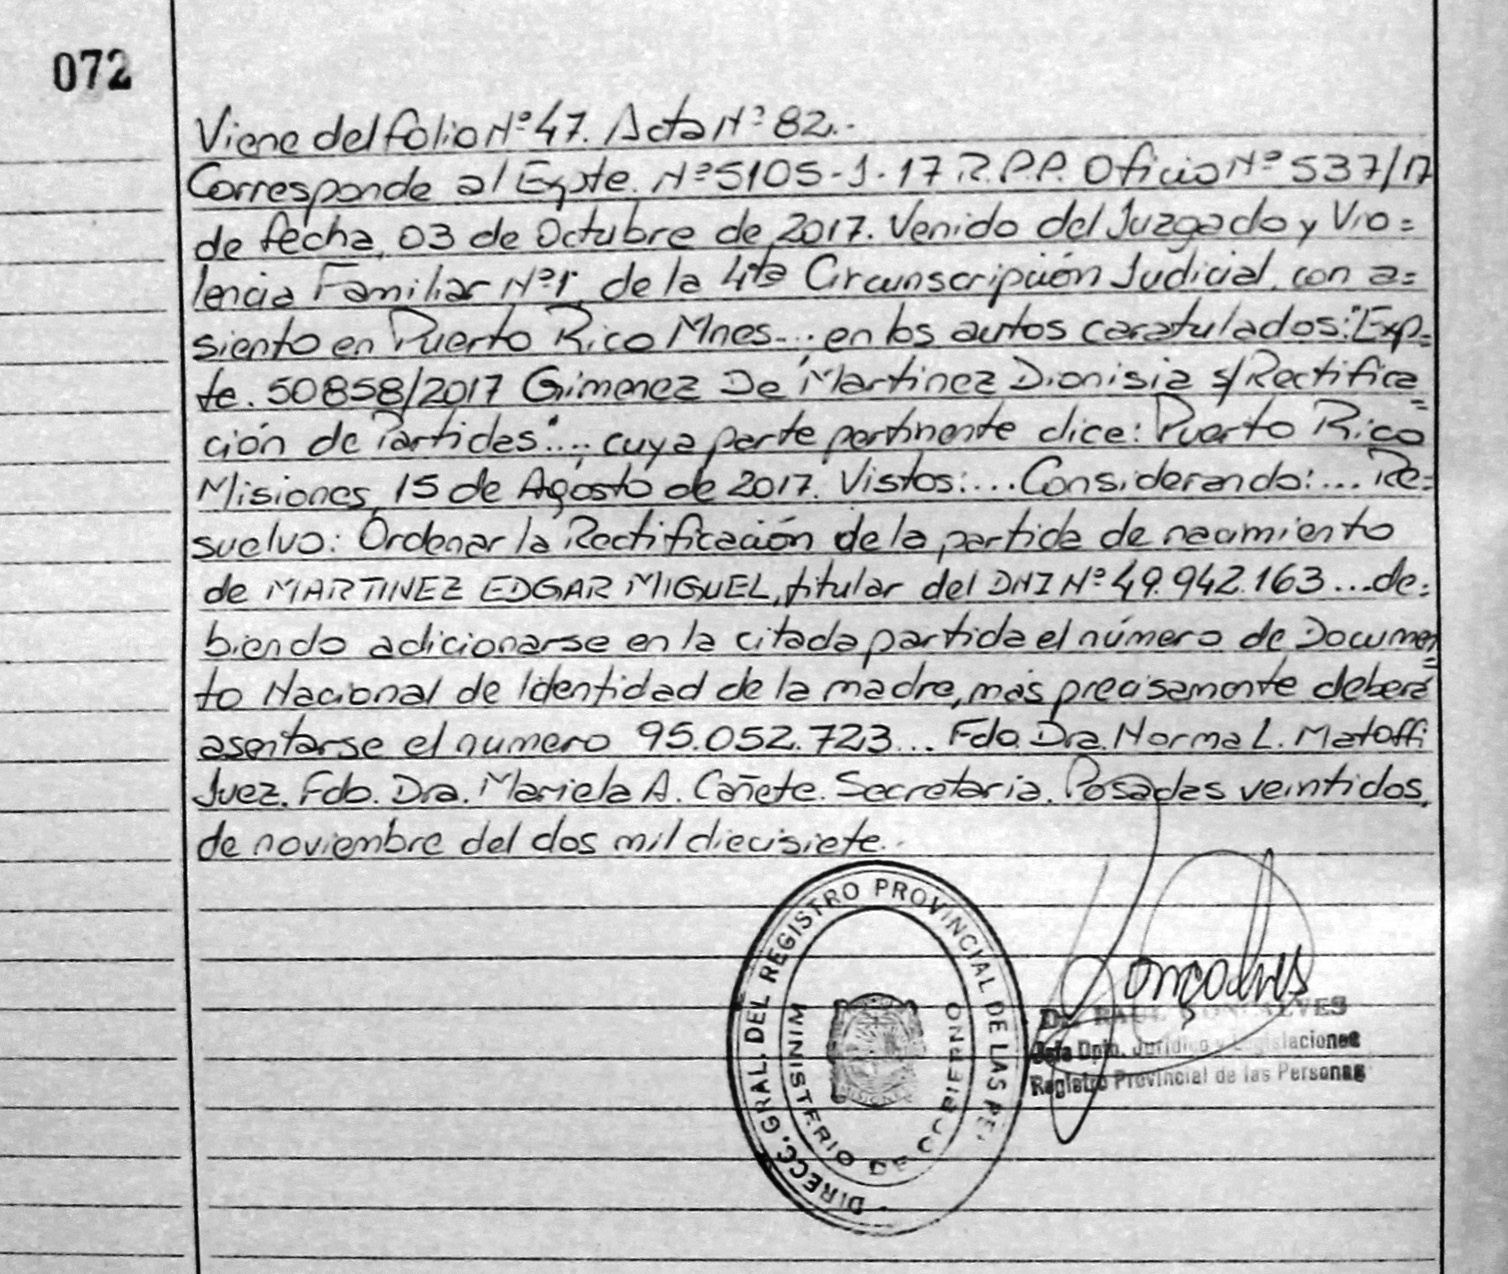 072
Viene del folio Nº 47. Acta Nº 82.-
Corresponde al Expte. Nº 5105-J-17 R.P.P. Oficio Nº 537/17
de fecha, 03 de Octubre de 2017. Venido del Juzgado y Vio=
lencia Familiar Nº1, de la 4ta Circunscripción Judicial, con a=
siento en Puerto Rico Mnes... en los autos caratulados: "Exp=
te. 50858/2017 Gimenez De Martinez Dionisia s/Rectifica=
ción de Partidas"..., cuya parte pertinente dice: Puerto Rico
Misiones, 15 de Agosto de 2017. Vistos:... Considerando:... Re=
suelvo: Ordenar la Rectificación de la partida de nacimiento
de MARTINEZ EDGAR MIGUEL, titular del DNI Nº 49.942.163...de=
biendo adicionarse en la citada partida el número de Documen=
to Nacional de Identidad de la madre, más precisamente deberá
asentarse el numero 95.052.723... Fdo. Dra. Norma L. Matoffi
Juez. Fdo. Dra. Mariela A. Cañete. Secretaria. Posadas veintidos,
de noviembre del dos mil diecisiete.-
DIRECC. GRAL. DEL REGISTRO PROVINCIAL DE LAS PE
MINISTERIO DE GOBIERNO
MISIONES
Gonçalves
Dr. RAUL GONCALVES
Jefe Dpto. Jurídico y Legislaciones
Registro Provincial de las Personas